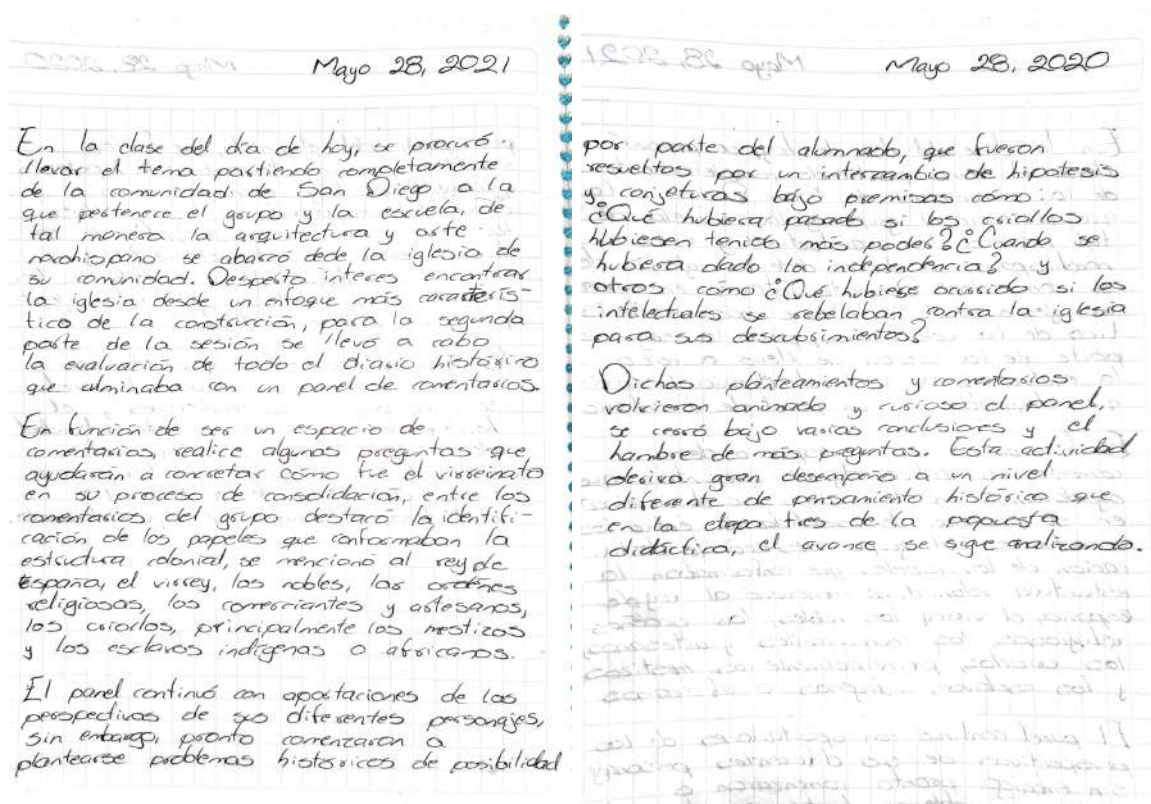 Mayo 28, 2021
En la clase del día de hoy, se procuró
llevar el tema partiendo completamente
de la comunidad de San Diego a la
que pertenece el grupo y la escuela, de
tal manera la arquitectura y arte
novohispano se abarcó dede la iglesia de
su comunidad. Desperto interes encontrar
la iglesia desde un enfoque más caracterís-
tico de la construcción, para la segunda
parte de la sesión se llevó a cabo
la evaluación de todo el diario histórico
que culminaba con un panel de comentarios.
En función de ser un espacio de
comentarios, realice algunas preguntas que
ayudarán a concretar cómo fue el virreinato
en su proceso de consolidación, entre los
comentarios del grupo destacó la identifi-
cación de los papeles que conformaban la
estructura colonial, se mencionó al rey de
España, el virrey, los nobles, las ordenes
religiosas, los comerciantes y artesanos,
los criollos, principalmente los mestizos
y los esclavos indígenas o africanos.
El panel continuó con aportaciones de las
perspectivas de sus diferentes personajes,
sin embargo, pronto comenzaron a
plantearse problemas históricos de posibilidad
Mayo 28, 2020
por parte del alumnado, que fueron
resueltos por un intercambio de hipotesis
y conjeturas bajo premisas cómo:
¿Qué hubiera pasado si los criollos
hubiesen tenido más poder? ¿Cuando se
hubiera dado la independencia? y
otros cómo ¿Qué hubiese ocurrido si los
intelectuales se rebelaban contra la iglesia
para sus descubrimientos?
Dichos planteamientos y comentarios
volvieron animado y curioso el panel,
se cerró bajo varias conclusiones y el
hambre de más preguntas. Esta actividad
deriva gran desempeño a un nivel
diferente de pensamiento histórico que
en la etapa tres de la propuesta
didáctica, el avance se sigue analizando.